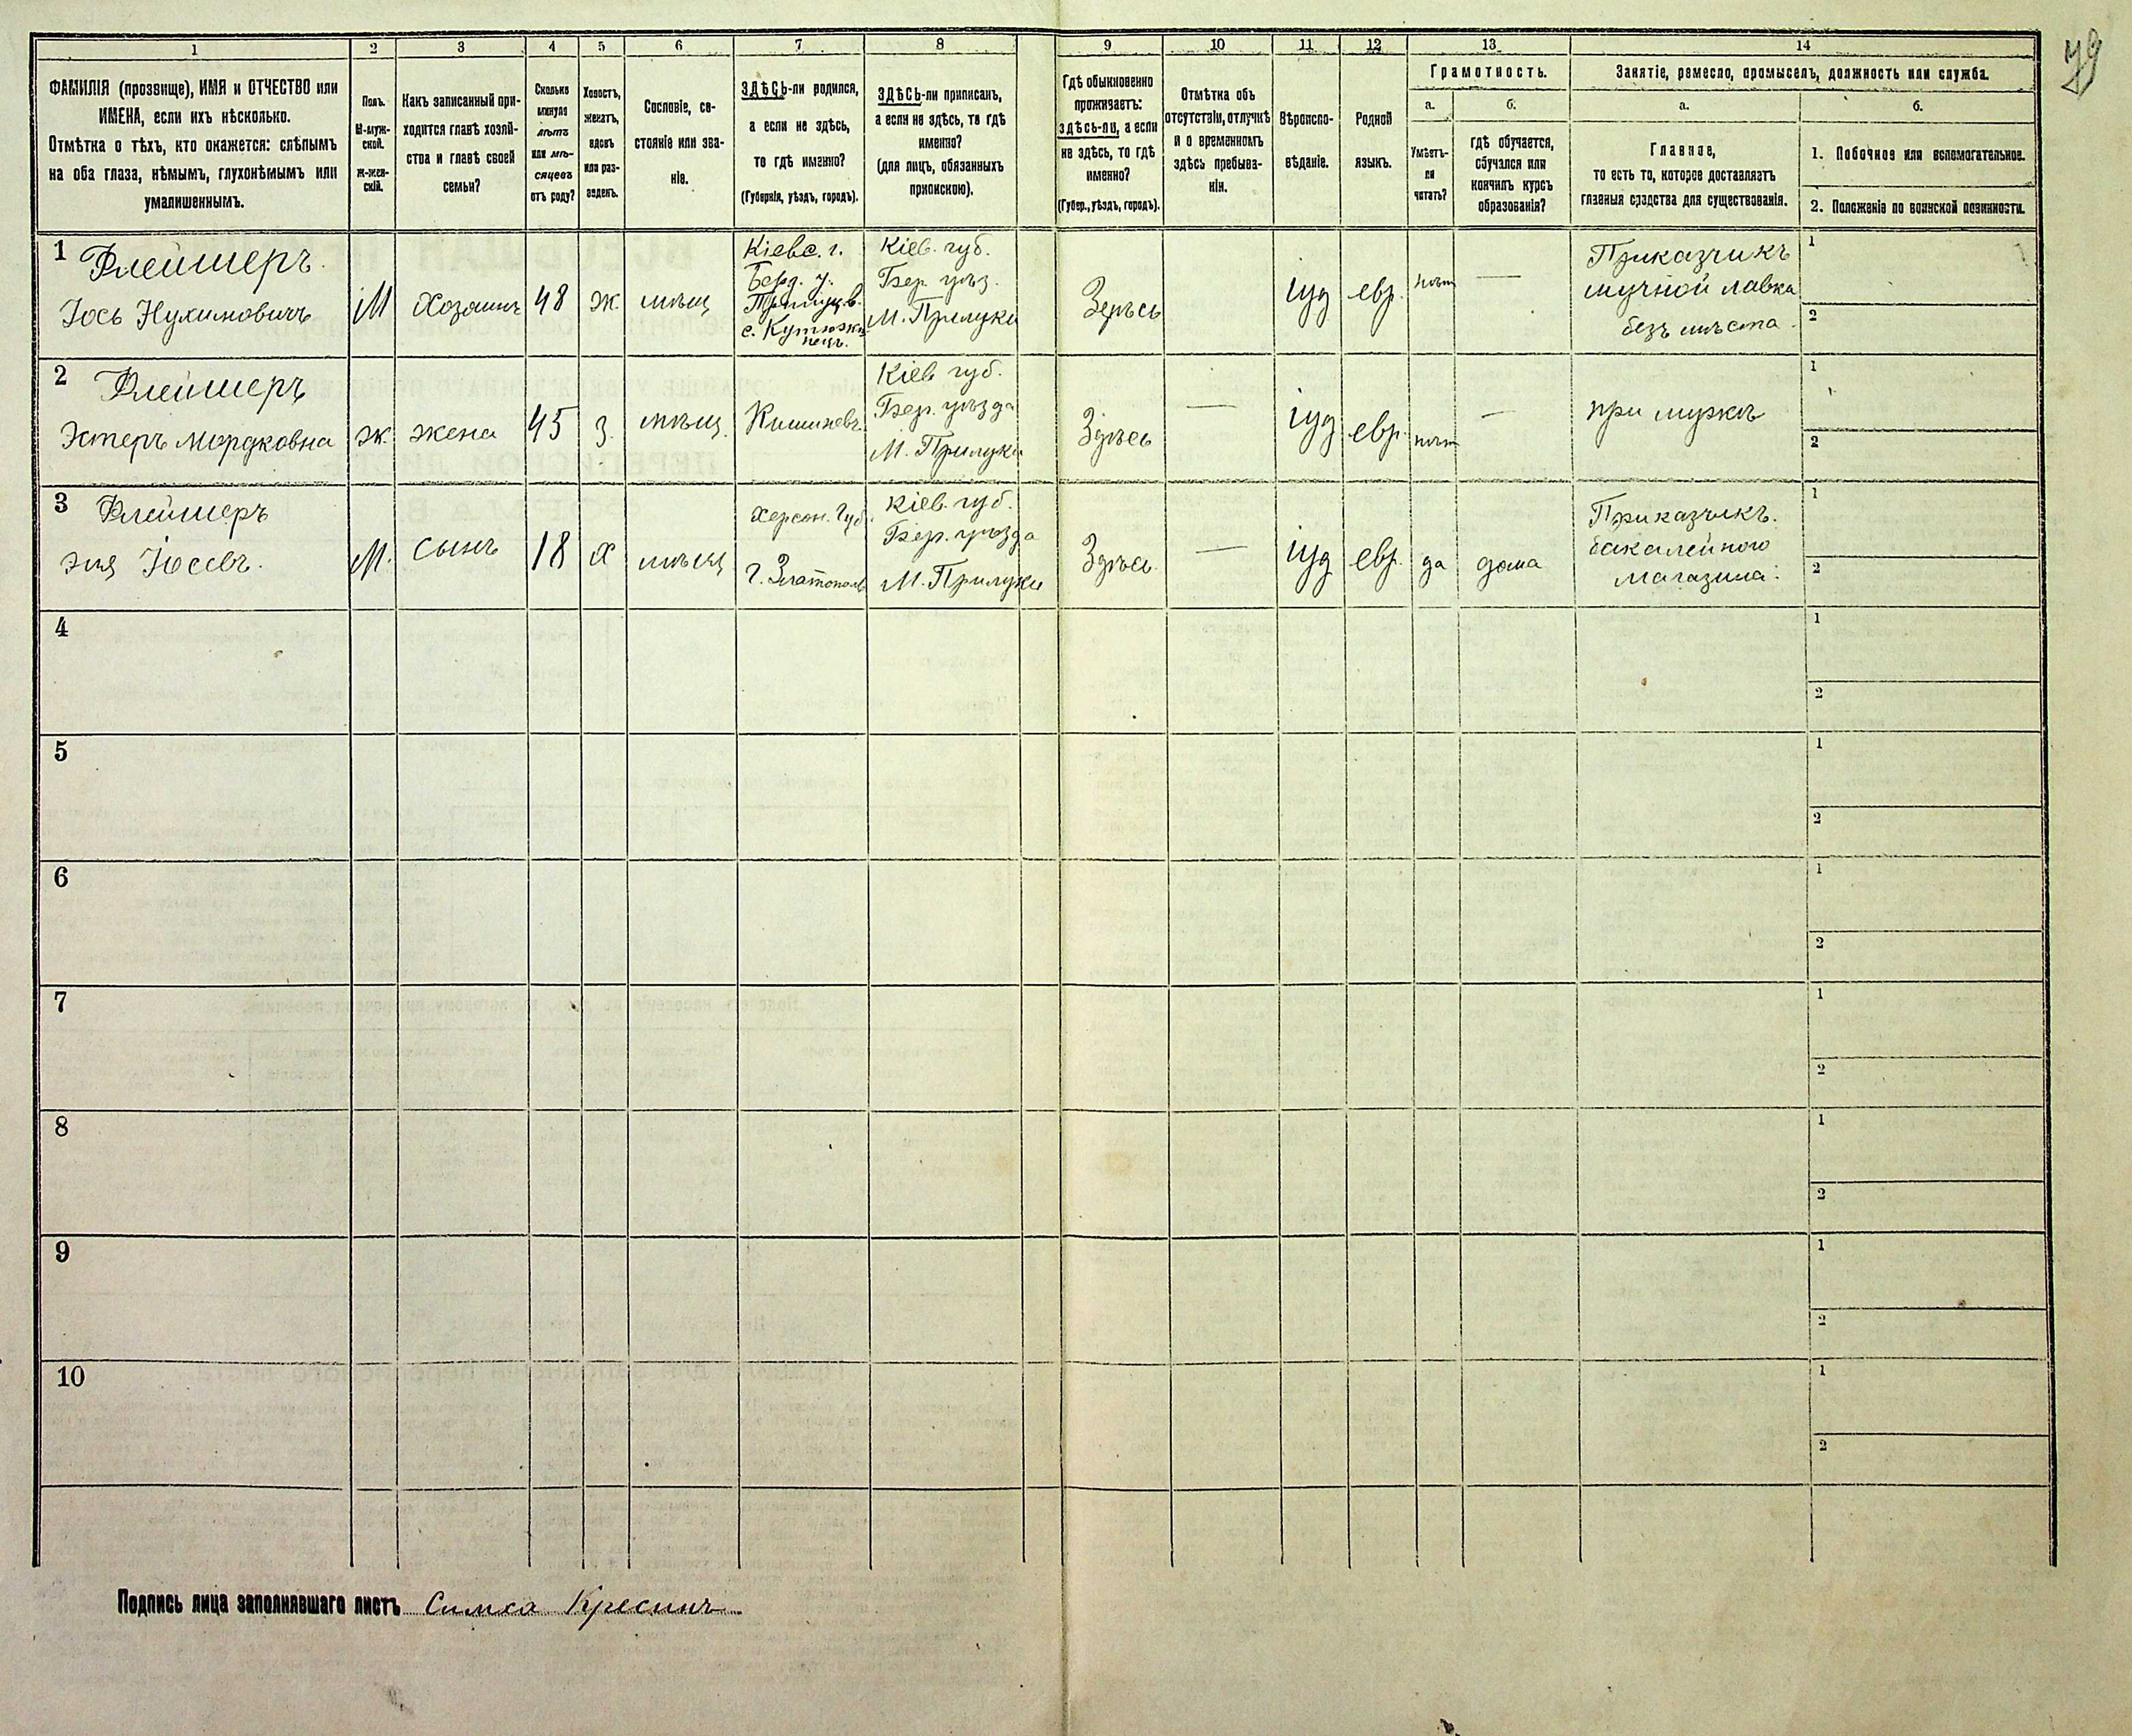 79
1 2 3 4 5 6 7 8 9 10 11 12 13 14
ФАМИЛІЯ (прозвище), ИМЯ и ОТЧЕСТВО или
ИМЕНА, если ихъ нѣсколько.
Отмѣтка о тѣхъ, кто окажется: слѣпымъ
на оба глаза, нѣмымъ, глухонѣмымъ или
умалишеннымъ.
Полъ.
М-муж-
ской.
Ж-жен-
скій.
Какъ записанный при-
ходится главѣ хозяй-
ства и главѣ своей
семьи?
Сколько
минуло
лѣтъ
или мѣ-
сяцевъ
отъ роду?
Холостъ,
женатъ,
вдовъ
или раз-
веденъ.
Сословіе, со-
стояніе или зва-
ніе.
ЗДѢСЬ-ли родился,
а если не здѣсь,
то гдѣ именно?
(Губернія, уѣздъ, городъ).
ЗДѢСЬ-ли приписанъ,
а если не здѣсь, то гдѣ
именно?
(для лицъ, обязанныхъ
припискою).
Гдѣ обыкновенно
проживаетъ:
здѣсь-ли, а если
не здѣсь, то гдѣ
именно?
(Губер., уѣздъ, городъ).
Отмѣтка объ
отсутствіи, отлучкѣ
и о временномъ
здѣсь пребыва-
ніи.
Вѣроиспо-
вѣданіе.
Родной
языкъ.
Грамотность.
а.
Умѣетъ-
ли
читать?
б.
гдѣ обучается,
обучался или
кончилъ курсъ
образованія?
Занятіе, ремесло, промыселъ, должность или служба.
а.
Главное,
то есть то, которое доставляетъ
главныя средства для существованія.
б.
1. Побочное или вспомогательное.
2. Положеніе по воинской повинности.
1
Флейшеръ
Іось Нухимовичъ
М
Хозяинъ
48
ж.
мѣщ
Кіевс. г.
Берд. у.
с. Кутюжи
Кіев. губ.
Бер. уѣз.
М. Прилуки
Здѣсь
іуд
евр.
нѣт
—
Приказчикъ
мучной лавки
безъ мѣста.
1
2
2
Флейшеръ
Эстеръ Мордковна
ж.
жена
45
з.
мѣщ.
Кишиневъ
Кіев губ.
Бер. уѣзда
М. Прилуки
Здѣсь
—
іуд
евр.
нѣт
—
при мужѣ
1
2
3
Флейшеръ
Эля Іосевъ.
М.
Сынъ
18
х
мѣщ
Херсон. Губ.
г. Златополь
Кіев. губ.
Бер. уѣзда
М. Прилуки
Здѣсь
—
іуд
евр.
да
дома
Приказчикъ.
бакалейного
магазина.
1
2
4
1
2
5
1
2
6
1
2
7
1
2
8
1
2
9
1
2
10
1
2
Подпись лица заполнявшаго листъ Симха Кресинъ